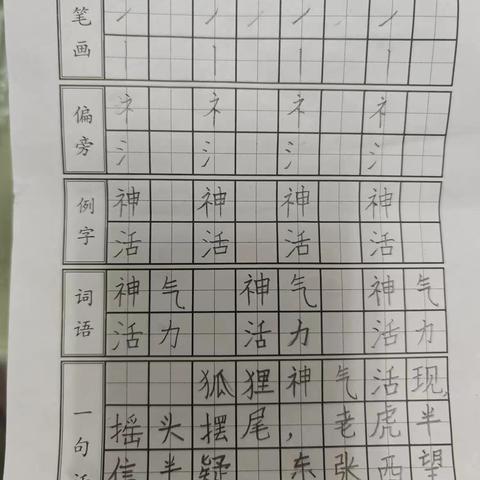 笔画
偏旁
礻 礻 礻 礻
氵 氵 氵 氵
例字
神 神 神 神
活 活 活 活
词语
神气 神气 神气
活力 活力 活力
一句话
狐狸神气活现,
摇头摆尾,老虎半
信半疑 东张西望